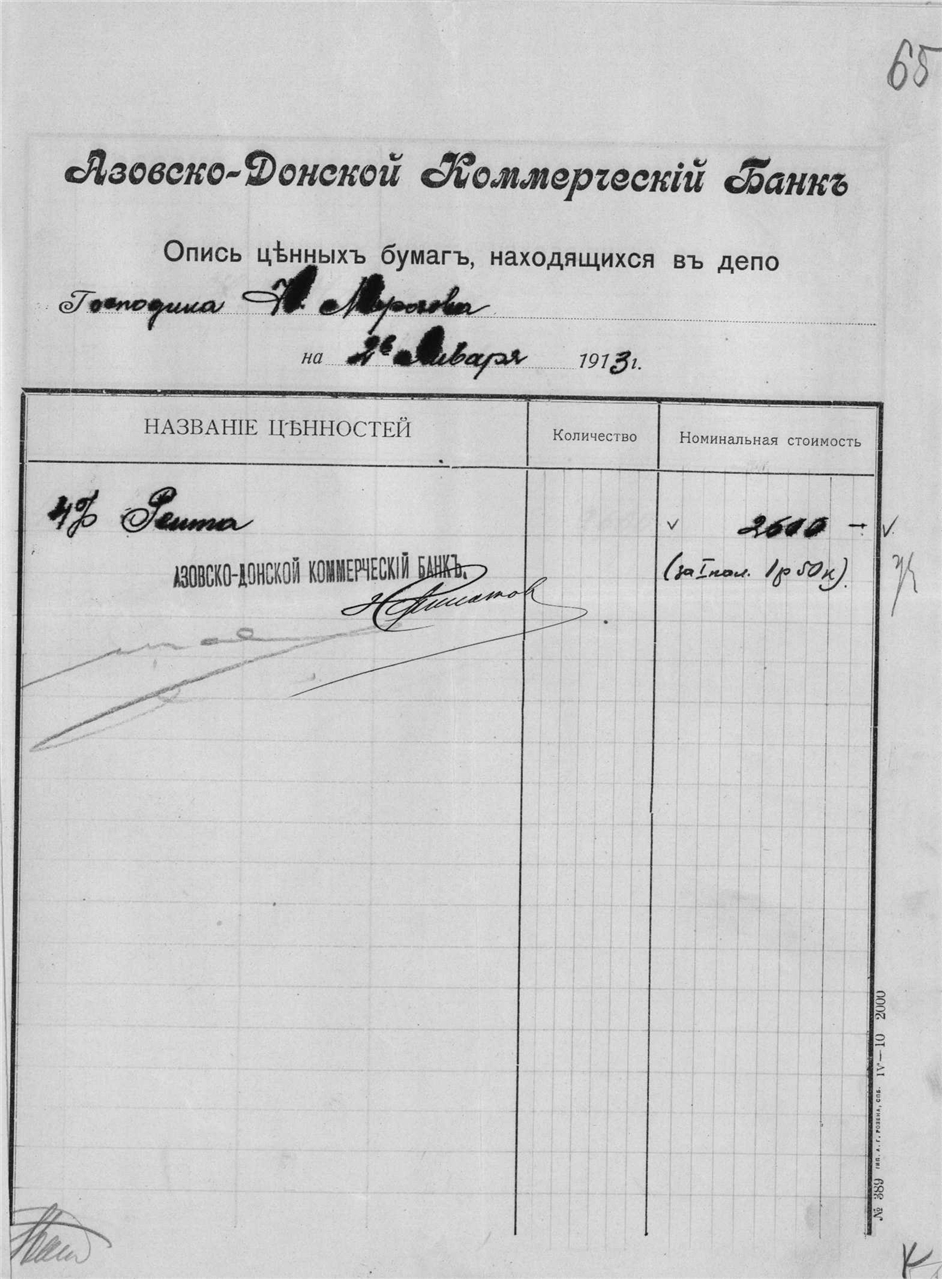 65
Азовско-Донской Коммерческій Банкъ
Опись цѣнныхъ бумагъ, находящихся въ депо
Господина Н. Морозова
на 2ь Января 1913 г.
НАЗВАНІЕ ЦѢННОСТЕЙ Количество Номинальная стоимость
4% Рента 2600 —
(за I пол. 1р 50к)
АЗОВСКО-ДОНСКОЙ КОММЕРЧЕСКІЙ БАНКЪ.
№ 389 ТИП. А. Г. РОЗЕНА, СПБ. IV—10 2000